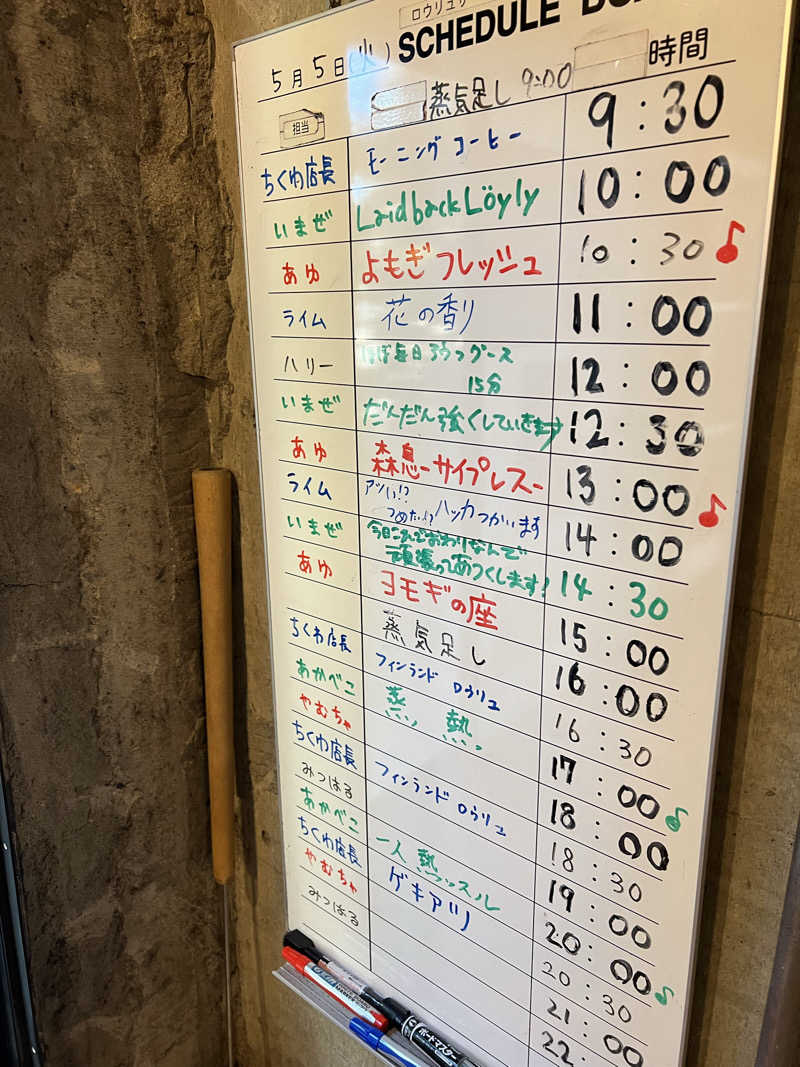 ロウリュウ
SCHEDULE
5月5日(火)
担当
蒸気足し 9:00
時間
ちくわ店長 モーニングコーヒー 9:30
いまぜ Laid back Löyly 10:00
あゆ よもぎフレッシュ 10:30
ライム 花の香り 11:00
ハリー ほぼ毎日アウフグース 12:00
15分
いまぜ だんだん強くしていきます 12:30
あゆ 森息-サイプレス- 13:00
ライム アツい!?
つめたい!?ハッカつかいます 14:00
いまぜ 今日これでおわりなんで
頑張ってあつくします! 14:30
あゆ ヨモギの座 15:00
蒸気足し 16:00
ちくわ店長 フィンランド ロウリュ 16:30
あかべこ 蒸 熱 17:00
やむちゃ 18:00
ちくわ店長 フィンランド ロウリュ 18:30
みつはる 19:00
あかべこ 一人熱マッスル 20:00
ちくわ店長 ゲキアツ 20:30
やむちゃ 21:00
みつはる 22:
ボードマスター